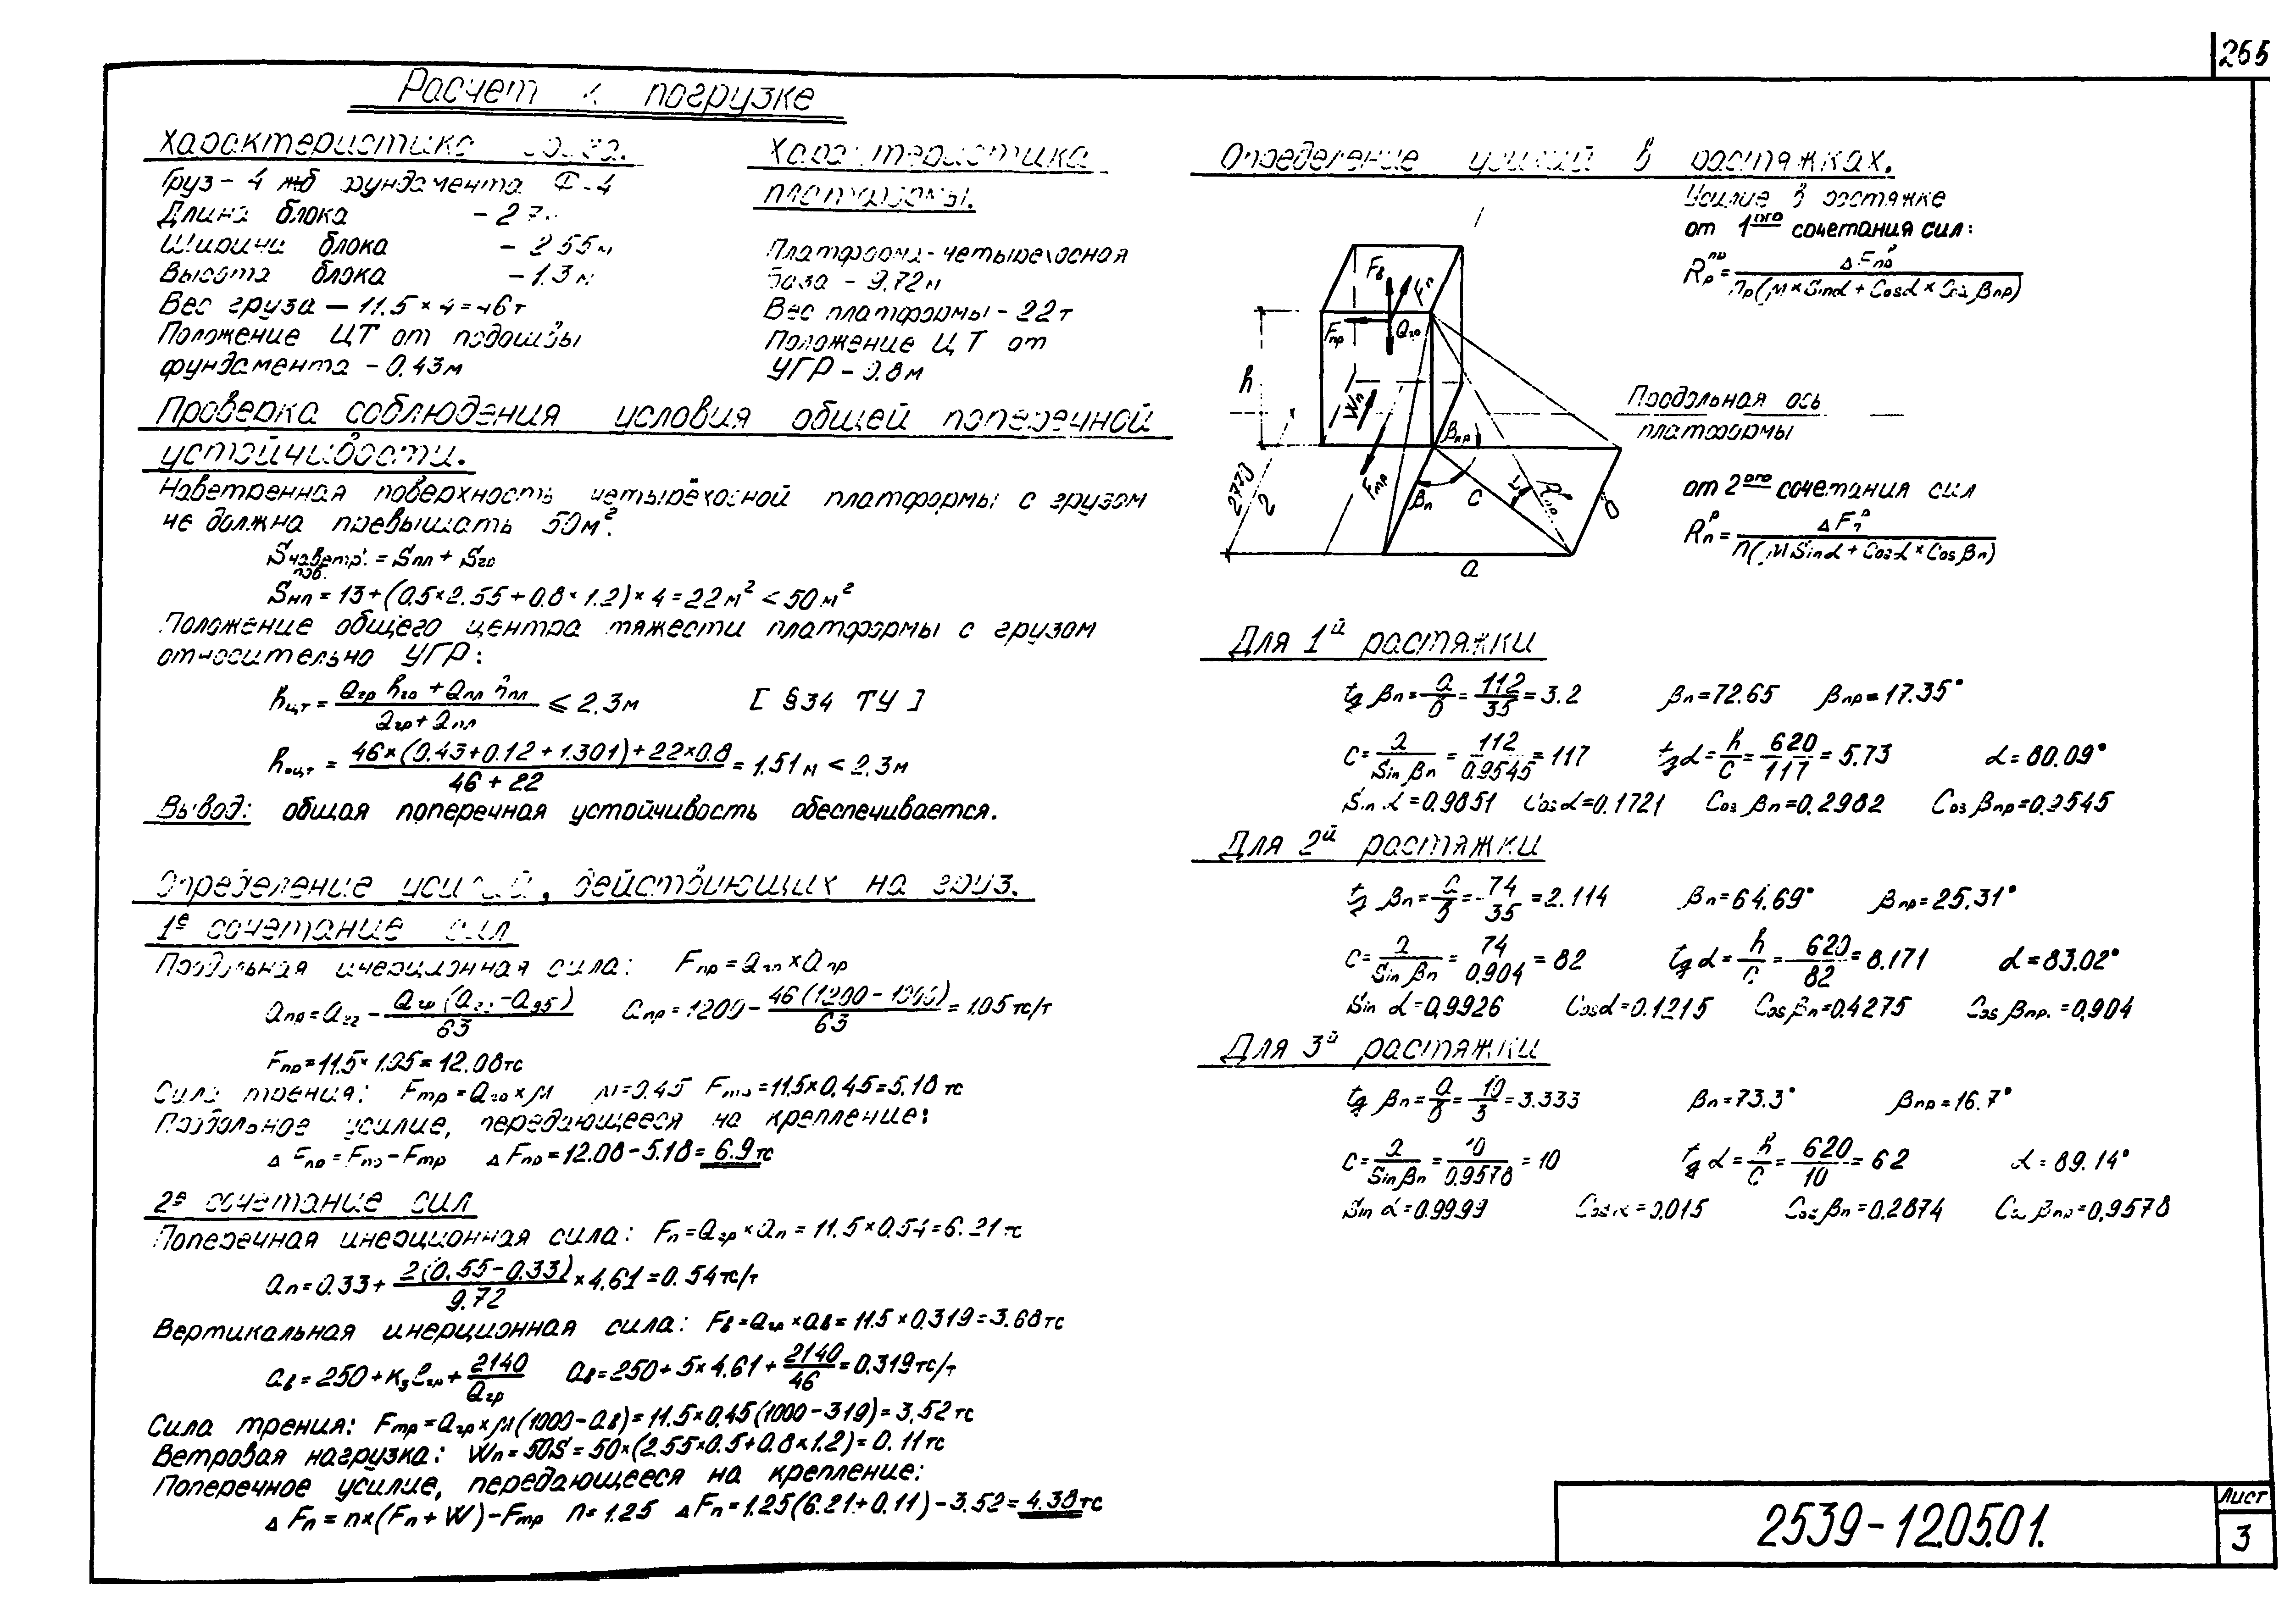 265
Расчет к погрузке
Характеристика груза.
Груз - 4 жб фундамента Ф-4
Длина блока - 2.7
Ширина блока - 2.55 м
Высота блока - 1.3 м
Вес груза — 11.5 × 4 = 46 т
Положение ЦТ от подошвы
фундамента - 0.43 м
Характеристика
платформы.
Платформа - четырехосная
База - 9.72 м
Вес платформы - 22 т
Положение ЦТ от
УГР - 0.8 м
Проверка соблюдения условия общей поперечной
устойчивости.
Наветренная поверхность четырёхосной платформы с грузом
не должна превышать 50 м².
Sнаветр. пов. = Sпл + Sгр
Sнп = 13 + (0.5 × 2.55 + 0.8 × 1.2) × 4 = 22 м² < 50 м²
Положение общего центра тяжести платформы с грузом
относительно УГР:
hц.т = (Qгр hгр + Qпл hпл) / (Qгр + Qпл) ≤ 2.3 м [ §34 ТУ ]
hоцт = (46 × (0.43 + 0.12 + 1.301) + 22 × 0.8) / (46 + 22) = 1.51 м < 2.3 м
Вывод: общая поперечная устойчивость обеспечивается.
Определение усилий, действующих на груз.
1е сочетание сил
Продольная инерционная сила: Fпр = Qгр × aпр
aпр = a22 - Qгр (a22 - a85) / 63 aпр = 1200 - 46 (1200 - 1000) / 63 = 1.05 тс/т
Fпр = 11.5 × 1.05 = 12.08 тс
Сила трения: Fтр = Qгр × μ μ = 0.45 Fтр = 11.5 × 0.45 = 5.18 тс
Продольное усилие, передающееся на крепление:
Δ Fпр = Fпр - Fтр Δ Fпр = 12.08 - 5.18 = 6.9 тс
2е сочетание сил
Поперечная инерционная сила: Fп = Qгр × aп = 11.5 × 0.54 = 6.21 тс
aп = 0.33 + 2(0.55 - 0.33) / 9.72 × 4.61 = 0.54 тс/т
Вертикальная инерционная сила: Fв = Qгр × aв = 11.5 × 0.319 = 3.68 тс
aв = 250 + кз lгр + 2140 / Qгр aв = 250 + 5 × 4.61 + 2140 / 46 = 0.319 тс/т
Сила трения: Fтр = Qгр × μ (1000 - aв) = 11.5 × 0.45 (1000 - 319) = 3.52 тс
Ветровая нагрузка: Wп = 50S = 50 × (2.55 × 0.5 + 0.8 × 1.2) = 0.11 тс
Поперечное усилие, передающееся на крепление:
Δ Fп = n × (Fп + W) - Fтр n = 1.25 Δ Fп = 1.25 (6.21 + 0.11) - 3.52 = 4.38 тс
Определение усилий в растяжках.
Усилие в растяжке
от 1ого сочетания сил:
Rрпр = Δ Fпрр / nр (μ × Sinα + Cosα × Cos βпр)
Fв
Fпр
Qгр
h
Wп
Fтр
βпр
βп
c
α
Rпрр
2770
2
a
Продольная ось
платформы
от 2ого сочетания сил
Rпр = Δ Fпр / n (μ Sinα + Cosα × Cos βп)
Для 1й растяжки
tg βп = a/в = 112/35 = 3.2 βп = 72.65 βпр = 17.35°
c = a / Sin βп = 112 / 0.9545 = 117 tg α = h/c = 620/117 = 5.73 α = 80.09°
Sin α = 0.9851 Cos α = 0.1721 Cos βп = 0.2982 Cos βпр = 0.9545
Для 2й растяжки
tg βп = a/в = 74/35 = 2.114 βп = 64.69° βпр = 25.31°
c = a / Sin βп = 74 / 0.904 = 82 tg α = h/c = 620/82 = 8.171 α = 83.02°
Sin α = 0.9926 Cosα = 0.1215 Cos βп = 0.4275 Cos βпр. = 0.904
Для 3й растяжки
tg βп = a/в = 10/3 = 3.333 βп = 73.3° βпр = 16.7°
c = a / Sin βп = 10 / 0.9578 = 10 tg α = h/c = 620/10 = 62 α = 89.14°
Sin α = 0.9999 Cos α = 0.015 Cos βп = 0.2874 Cos βпр = 0.9578
2539-12.05.01.
Лист
3